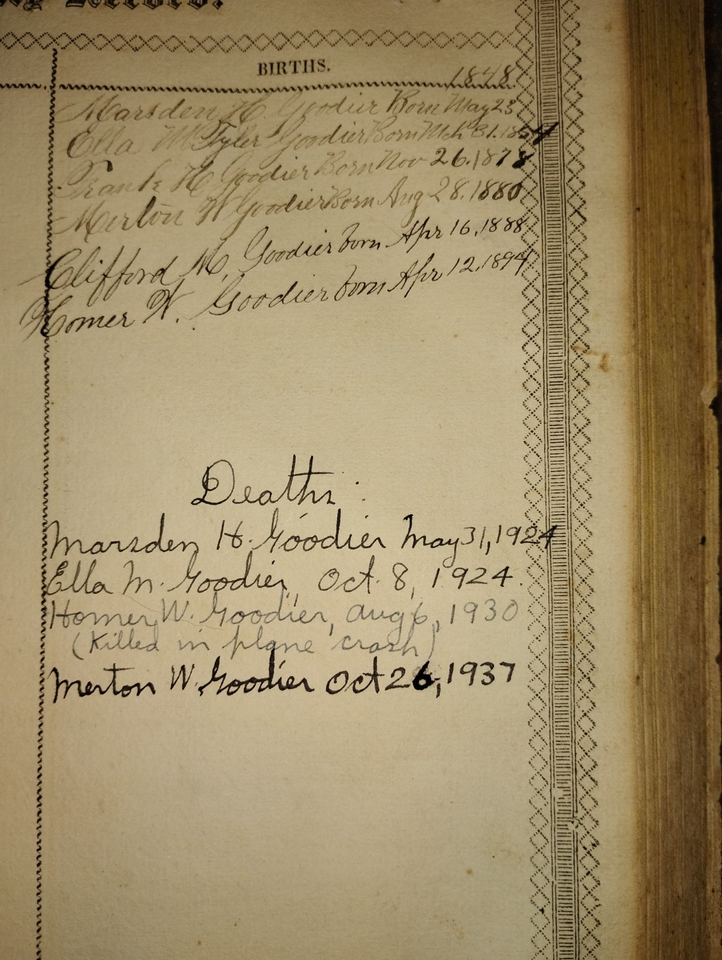 Record.
BIRTHS.
1848.
Marsden H. Goodier Born May 23
Ella M Tyler Goodier Born Mch 31.1854
Frank H Goodier Born Nov 26.1878
Merton W Goodier Born Aug 28.1880
Clifford M. Goodier born Apr 16, 1888
Homer W. Goodier born Apr 12.1894
Deaths:
Marsden H. Goodier May 31, 1924
Ella M. Goodier, Oct. 8, 1924.
Homer W. Goodier, Aug 6, 1930
(Killed in plane crash)
Merton W. Goodier Oct 26, 1937